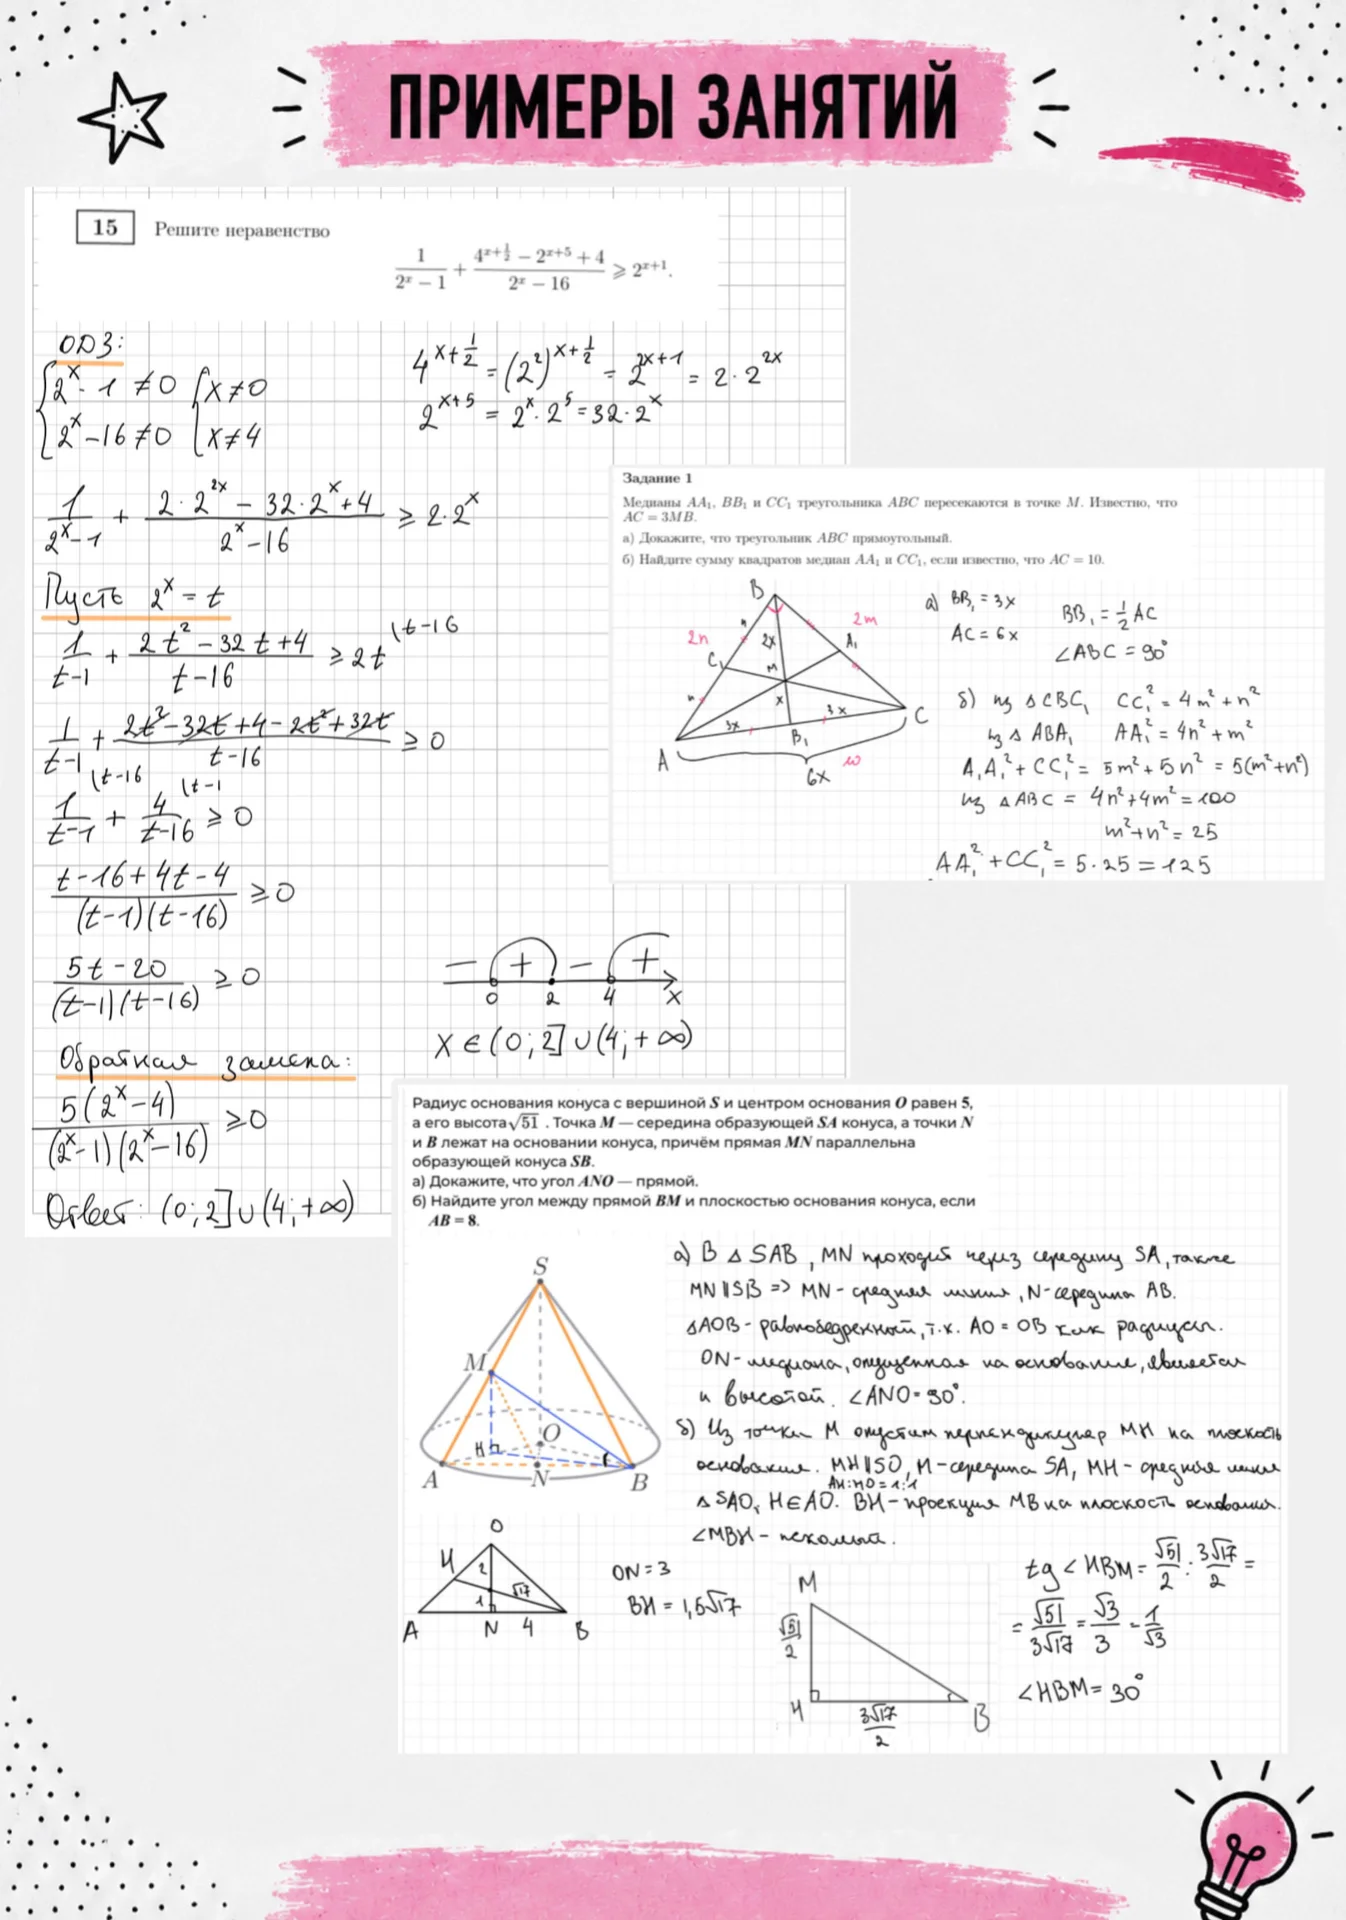 ПРИМЕРЫ ЗАНЯТИЙ
15 Решите неравенство
1/(2^x − 1) + (4^(x+1/2) − 2^(x+5) + 4)/(2^x − 16) ⩾ 2^(x+1).
ОДЗ:
{2^x − 1 ≠ 0 {x ≠ 0
{2^x − 16 ≠ 0 {x ≠ 4
4^(x+1/2) = (2^2)^(x+1/2) = 2^(2x+1) = 2 · 2^(2x)
2^(x+5) = 2^x · 2^5 = 32 · 2^x
1/(2^x − 1) + (2 · 2^(2x) − 32 · 2^x + 4)/(2^x − 16) ⩾ 2 · 2^x
Пусть 2^x = t
1/(t−1) + (2t^2 − 32t + 4)/(t−16) ⩾ 2t \t−16
1/(t−1) + (2t^2 − 32t + 4 − 2t^2 + 32t)/(t−16) ⩾ 0
1/(t−1) \t−16 + 4/(t−16) \t−1 ⩾ 0
(t−16+4t−4)/((t−1)(t−16)) ⩾ 0
(5t−20)/((t−1)(t−16)) ⩾ 0
Обратная замена:
5(2^x−4)/((2^x−1)(2^x−16)) ⩾ 0
Ответ: (0; 2] ∪ (4; +∞)
− + − +
0 2 4 x
x ∈ (0; 2] ∪ (4; +∞)
Задание 1
Медианы AA₁, BB₁ и CC₁ треугольника ABC пересекаются в точке M. Известно, что
AC = 3MB.
а) Докажите, что треугольник ABC прямоугольный.
б) Найдите сумму квадратов медиан AA₁ и CC₁, если известно, что AC = 10.
B
2n n 2x 2m
C₁ M A₁
n x
3x 3x C
A B₁
6x w
а) BB₁ = 3x BB₁ = 1/2 AC
AC = 6x ∠ABC = 90°
б) из △CBC₁ CC₁² = 4m² + n²
из △ABA₁ AA₁² = 4n² + m²
A₁A₁² + CC₁² = 5m² + 5n² = 5(m² + n²)
из △ABC = 4n² + 4m² = 100
m² + n² = 25
AA₁² + CC₁² = 5 · 25 = 125
Радиус основания конуса с вершиной S и центром основания O равен 5,
а его высота √51 . Точка M — середина образующей SA конуса, а точки N
и B лежат на основании конуса, причём прямая MN параллельна
образующей конуса SB.
а) Докажите, что угол ANO — прямой.
б) Найдите угол между прямой BM и плоскостью основания конуса, если
AB = 8.
S
M
H O
A N B
а) В △SAB, MN проходит через середину SA, также
MN ∥ SB => MN - средняя линия, N-середина AB.
△AOB - равнобедренный, т.к. AO = OB как радиусы.
ON - медиана, опущенная на основание, является
и высотой. ∠ANO = 90°.
б) Из точки M опустим перпендикуляр MH на плоскость
основания. MH ∥ SO, M-середина SA, MH - средняя линия
AH:HO = 1:1
△SAO, H∈AO. BH - проекция MB на плоскость основания.
∠MBH - искомый.
O
H 2 √17
1
A N 4 B
ON = 3
BH = 1,5√17
M
√51/2
H 3√17/2 B
tg ∠HBM = √51/2 : 3√17/2 =
= √51/3√17 = √3/3 = 1/√3
∠HBM = 30°